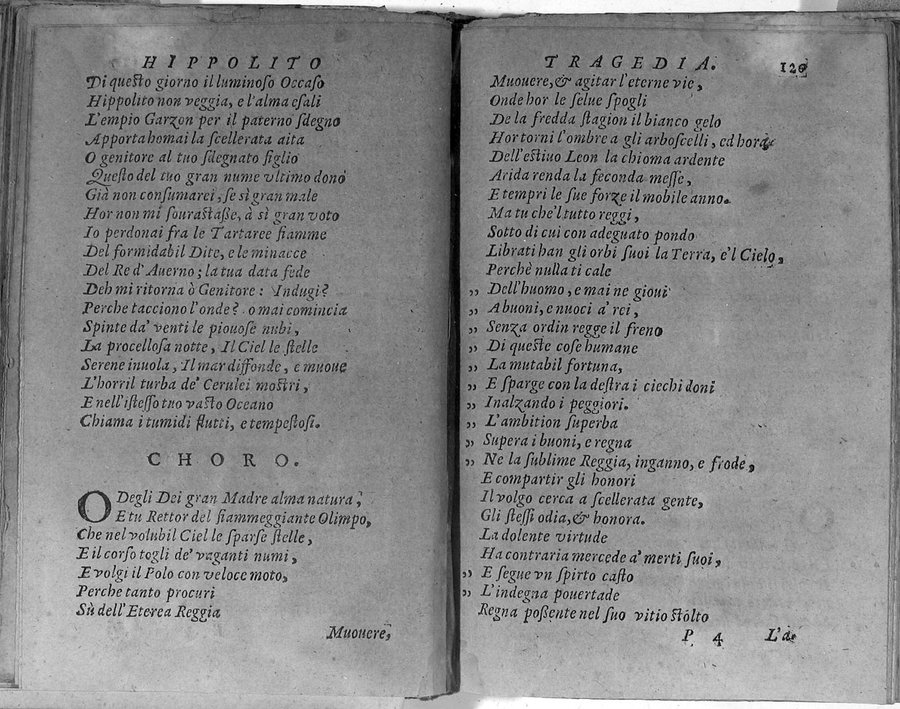 HIPPOLITO
Di questo giorno il luminoso Occaso
Hippolito non veggia, e l'alma esali
L'empio Garzon per il paterno sdegno
Apporta homai la scellerata aita
O genitore al tuo sdegnato figlio
Questo del tuo gran nume vltimo dono
Già non consumarei, se sì gran male
Hor non mi sourastasse, à sì gran voto
Io perdonai fra le Tartaree fiamme
Del formidabil Dite, e le minacce
Del Re d'Auerno; la tua data fede
Deh mi ritorna ò Genitore: Indugi?
Perche tacciono l'onde? omai comincia
Spinte da' venti le piouose nubi,
La procellosa notte, Il Ciel le stelle
Serene inuola, Il mar diffonde, e muoue
L'horril turba de' Cerulei mostri,
E nell'istesso tuo vasto Oceano
Chiama i tumidi flutti, e tempestosi.
CHORO.
O Degli Dei gran Madre alma natura,
E tu Rettor del fiammeggiante Olimpo,
Che nel volubil Ciel le sparse stelle,
E il corso togli de' vaganti numi,
E volgi il Polo con veloce moto,
Perche tanto procuri
Sù dell'Eterea Reggia
Muouere,
TRAGEDIA. 120
Muouere, & agitar l'eterne vie,
Onde hor le selue spogli
De la fredda stagion il bianco gelo
Hor torni l'ombre a gli arboscelli, ed hora
Dell'estiuo Leon la chioma ardente
Arida renda la feconda messe,
E tempri le sue forze il mobile anno.
Ma tu che'l tutto reggi,
Sotto di cui con adeguato pondo
Librati han gli orbi suoi la Terra, e'l Cielo,
Perchè nulla ti cale
„ Dell'huomo, e mai ne gioui
„ A buoni, e nuoci a' rei,
„ Senza ordin regge il freno
„ Di queste cose humane
„ La mutabil fortuna,
„ E sparge con la destra i ciechi doni
„ Inalzando i peggiori.
„ L'ambition superba
„ Supera i buoni, e regna
„ Ne la sublime Reggia, inganno, e frode,
E compartir gli honori
Il volgo cerca a scellerata gente,
Gli stessi odia, & honora.
La dolente virtude
Ha contraria mercede a' merti suoi,
„ E segue vn spirto casto
„ L'indegna pouertade
Regna possente nel suo vitio stolto
P 4 L'a